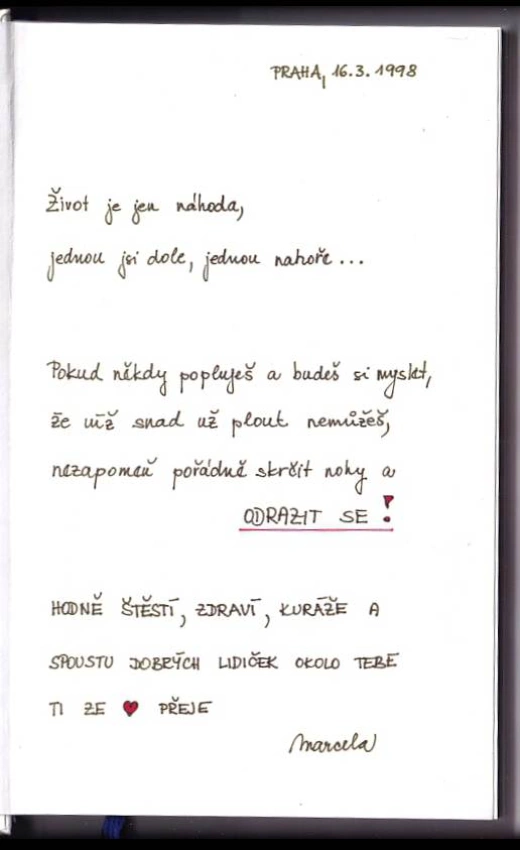 PRAHA, 16.3.1998
Život je jen náhoda,
jednou jsi dole, jednou nahoře...
Pokud někdy popluješ a budeš si myslet,
že níž snad už plout nemůžeš,
nezapomeň pořádně skrčit nohy a
ODRAZIT SE!
HODNĚ ŠTĚSTÍ, ZDRAVÍ, KURÁŽE A
SPOUSTU DOBRÝCH LIDIČEK OKOLO TEBE
TI ZE ♥ PŘEJE
Marcela